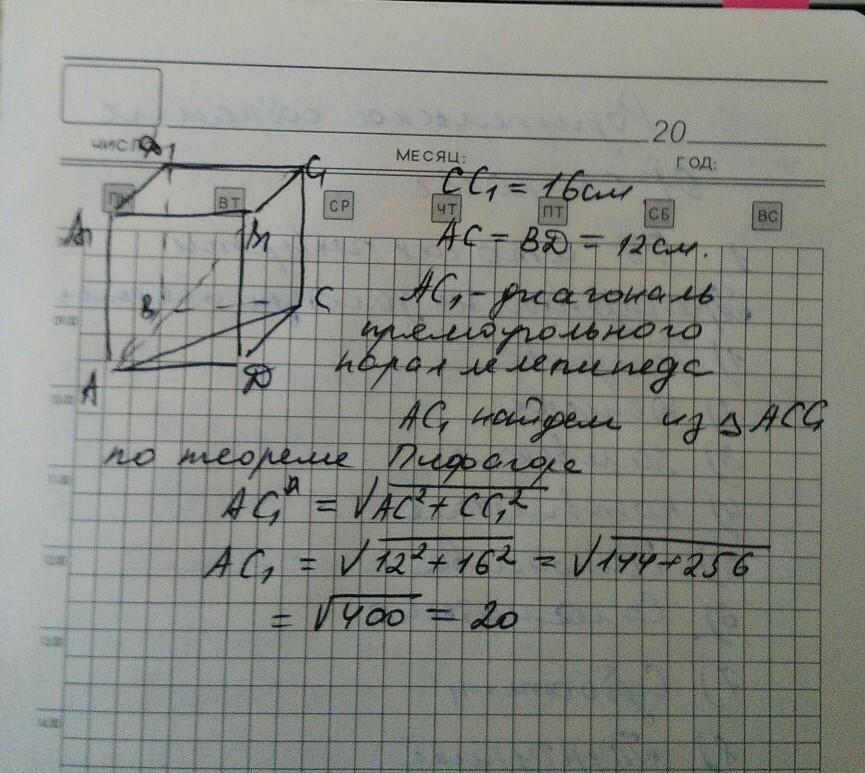 20
ЧИСЛО
МЕСЯЦ:
ГОД:
ПН ВТ СР ЧТ ПТ СБ ВС
C₁
A₁
B₁
B
C
A
D
CC₁ = 16см
AC = BD = 12см.
AC₁ - диагональ
прямоугольного
параллелепипеда
AC₁ найдем из △ ACC₁
по теореме Пифагора
AC₁ = √AC² + CC₁²
AC₁ = √12² + 16² = √144+256
= √400 = 20